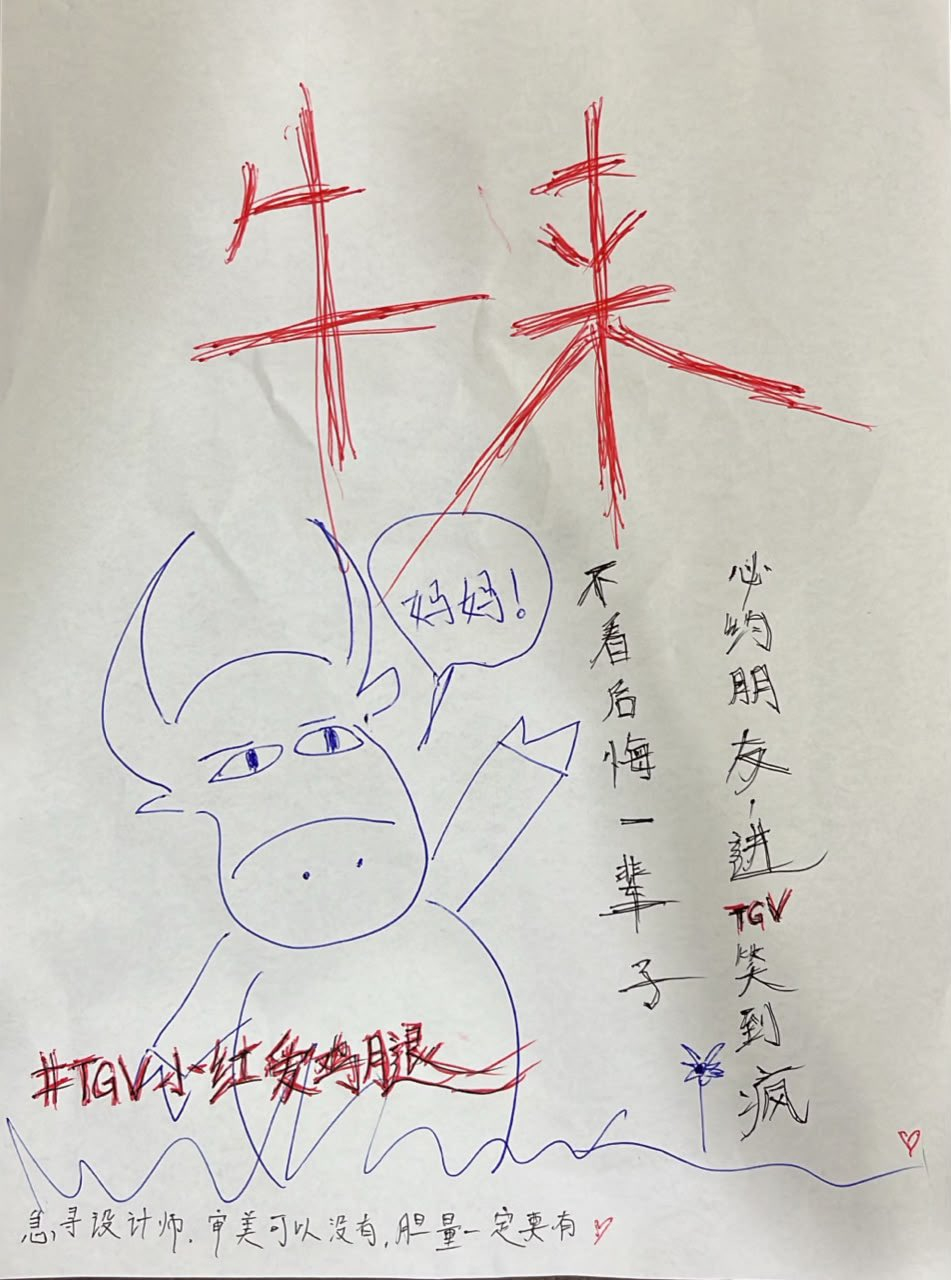 牛来
妈妈!
必约朋友,進TGV笑到疯
不看后悔一辈子
#TGV小红爱鸡腿
急寻设计师,审美可以没有,胆量一定要有